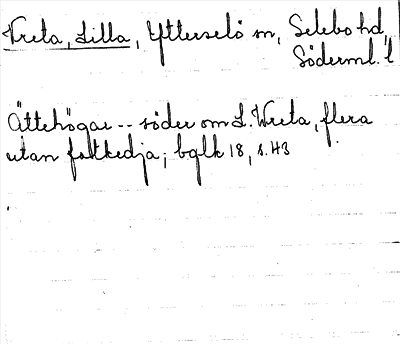 Vreta, Lilla, Ytterselö sn, Selebo hd,
Söderml. l
Ättehögar -- söder om L. Wreta, flera
utan fotkedja; bglk 18, s. 43